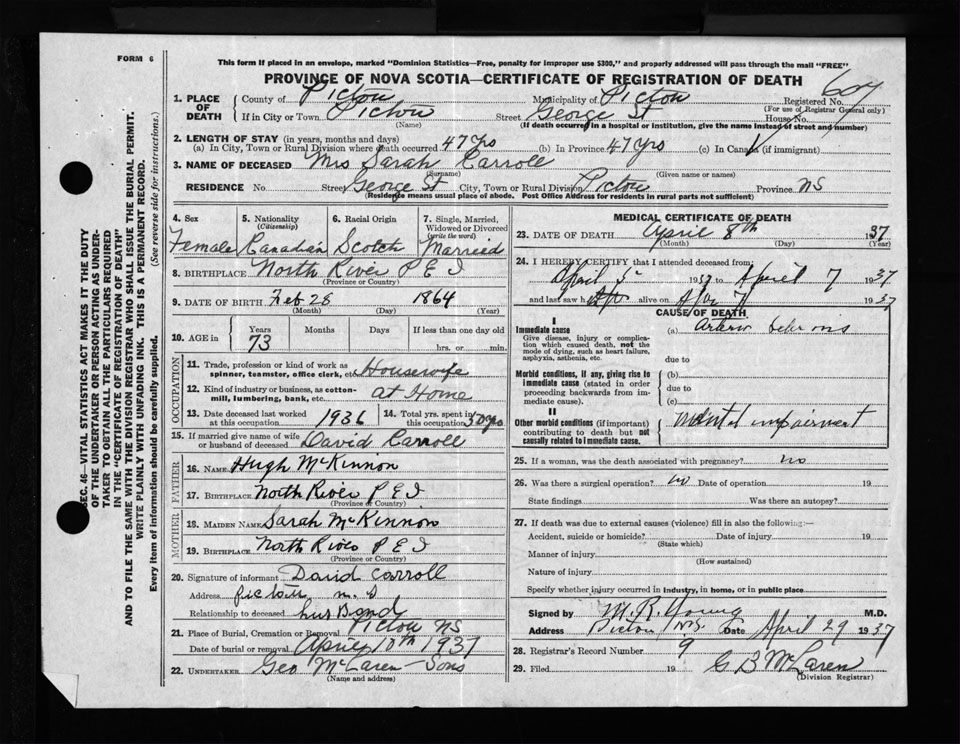 FORM 6
This form if placed in an envelope, marked "Dominion Statistics—Free, penalty for improper use $300," and properly addressed will pass through the mail "FREE"
PROVINCE OF NOVA SCOTIA—CERTIFICATE OF REGISTRATION OF DEATH
SEC. 46—VITAL STATISTICS ACT MAKES IT THE DUTY
OF THE UNDERTAKER OR PERSON ACTING AS UNDER-
TAKER TO OBTAIN ALL THE PARTICULARS REQUIRED
IN THE "CERTIFICATE OF REGISTRATION OF DEATH"
AND TO FILE THE SAME WITH THE DIVISION REGISTRAR WHO SHALL ISSUE THE BURIAL PERMIT.
WRITE PLAINLY WITH UNFADING INK. THIS IS A PERMANENT RECORD.
Every item of information should be carefully supplied. (See reverse side for instructions.)
1. PLACE OF DEATH
County of Pictou Municipality of Pictou Registered No. 607
(For use of Registrar General only)
If in City or Town Pictou Street George St House No.
(Name) (If death occurred in a hospital or institution, give the name instead of street and number)
2. LENGTH OF STAY (in years, months and days)
(a) In City, Town or Rural Division where death occurred 47 Yrs (b) In Province 47 Yrs (c) In Canada (if immigrant)
3. NAME OF DECEASED Mrs Sarah Carroll
(Surname) (Given name or names)
RESIDENCE No. Street George St City, Town or Rural Division Pictou Province NS
(Residence means usual place of abode. Post Office Address for residents in rural parts not sufficient)
4. Sex Female
5. Nationality (Citizenship) Canadian
6. Racial Origin Scotch
7. Single, Married, Widowed or Divorced (write the word) Married
8. BIRTHPLACE North River P E I
(Province or Country)
9. DATE OF BIRTH Feb 28 1864
(Month) (Day) (Year)
10. AGE in Years 73 Months Days If less than one day old
hrs. or min.
OCCUPATION
11. Trade, profession or kind of work as spinner, teamster, office clerk, etc. Housewife
12. Kind of industry or business, as cotton-mill, lumbering, bank, etc. at Home
13. Date deceased last worked at this occupation 1936
14. Total yrs. spent in this occupation 50 yrs
15. If married give name of wife or husband of deceased David Carroll
FATHER
16. NAME Hugh McKinnon
17. BIRTHPLACE North River P E I
(Province or Country)
MOTHER
18. MAIDEN NAME Sarah McKinnon
19. BIRTHPLACE North River P E I
(Province or Country)
20. Signature of informant David Carroll
Address Pictou
Relationship to deceased husBand
21. Place of Burial, Cremation or Removal Pictou NS
Date of burial or removal April 10th 1937
22. UNDERTAKER Geo McLaren - Sons
(Name and address)
MEDICAL CERTIFICATE OF DEATH
23. DATE OF DEATH April 8th 1937
(Month) (Day) (Year)
24. I HEREBY CERTIFY that I attended deceased from:
April 5 1937 to April 7 1937
and last saw h alive on Apr 7 1937
CAUSE OF DEATH
I
Immediate cause
Give disease, injury or complication which caused death, not the mode of dying, such as heart failure, asphyxia, asthenia, etc.
(a) Arterio
due to
Morbid conditions, if any, giving rise to immediate cause (stated in order proceeding backwards from immediate cause).
(b)
due to
(c)
II
Other morbid conditions (if important) contributing to death but not causally related to immediate cause.
Mental impairment
25. If a woman, was the death associated with pregnancy? no
26. Was there a surgical operation? no Date of operation 19
State findings Was there an autopsy?
27. If death was due to external causes (violence) fill in also the following:—
Accident, suicide or homicide? Date of injury 19
(State which)
Manner of injury
(How sustained)
Nature of injury
Specify whether injury occurred in industry, in home, or in public place
Signed by M. R. Young M.D.
Address Pictou N.S. Date April 29 1937
28. Registrar's Record Number 9
29. Filed 19 G B McLaren
(Division Registrar)